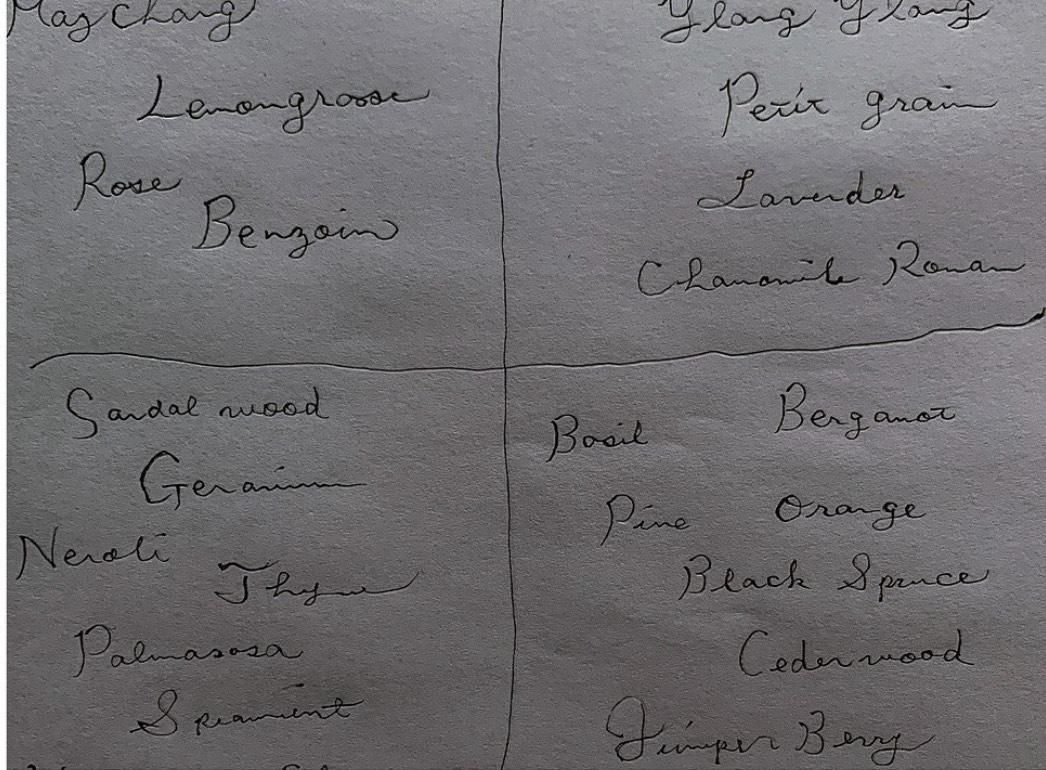 May Chang
Lemongrasse
Rose
Benzoin
Ylang Ylang
Petit grain
Lavender
Chamomile Roman
Sandal wood
Geranium
Neroli
Thyme
Palmasosa
Spearmint
Basil Bergamot
Pine Orange
Black Spruce
Ceder wood
Juniper Berry